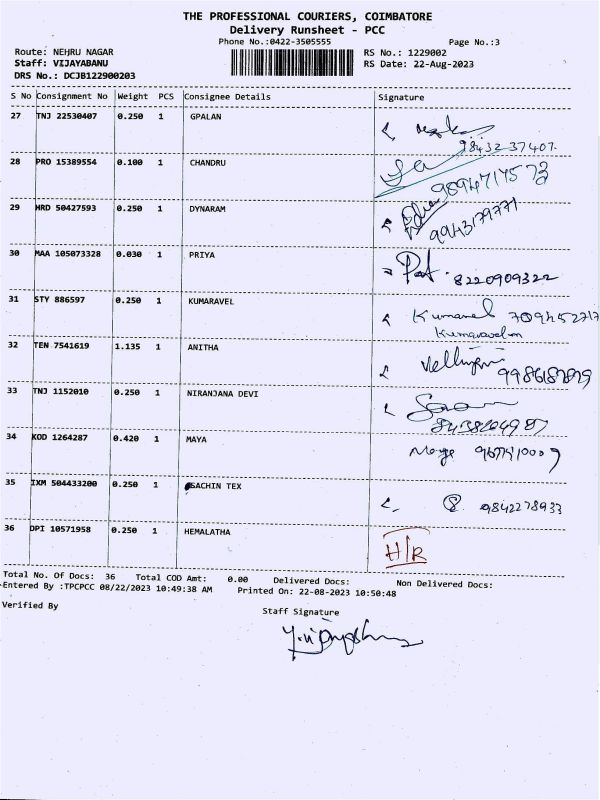 THE PROFESSIONAL COURIERS, COIMBATORE
Delivery Runsheet - PCC
Phone No.:0422-3505555 Page No.:3
Route: NEHRU NAGAR RS No.: 1229002
Staff: VIJAYABANU RS Date: 22-Aug-2023
DRS No.: DCJB122900203
S No Consignment No Weight PCS Consignee Details Signature
27 TNJ 22530407 0.250 1 GPALAN
98432 37407.
28 PRO 15389554 0.100 1 CHANDRU
9894717573
29 HRD 50427593 0.250 1 DYNARAM
9943179771
30 MAA 105073328 0.030 1 PRIYA
8220909322
31 STY 886597 0.250 1 KUMARAVEL
Kumaravel 709452717
Kumaravelan
32 TEN 7541619 1.135 1 ANITHA
33 TNJ 1152010 0.250 1 NIRANJANA DEVI
34 KOD 1264287 0.420 1 MAYA
35 IXM 504433200 0.250 1 SACHIN TEX
9842278933
36 DPI 10571958 0.250 1 HEMALATHA
H/R
Total No. Of Docs: 36 Total COD Amt: 0.00 Delivered Docs: Non Delivered Docs:
Entered By :TPCPCC 08/22/2023 10:49:38 AM Printed On: 22-08-2023 10:50:48
Verified By
Staff Signature